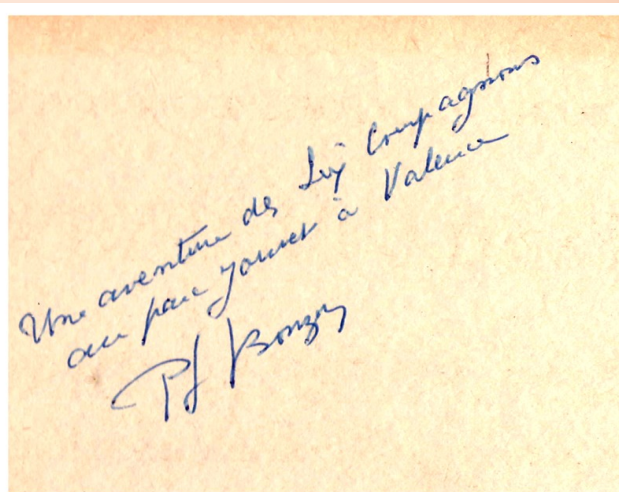 Une aventure des Six Compagnons
au parc Jouvet à Valence
PJ Bonzon